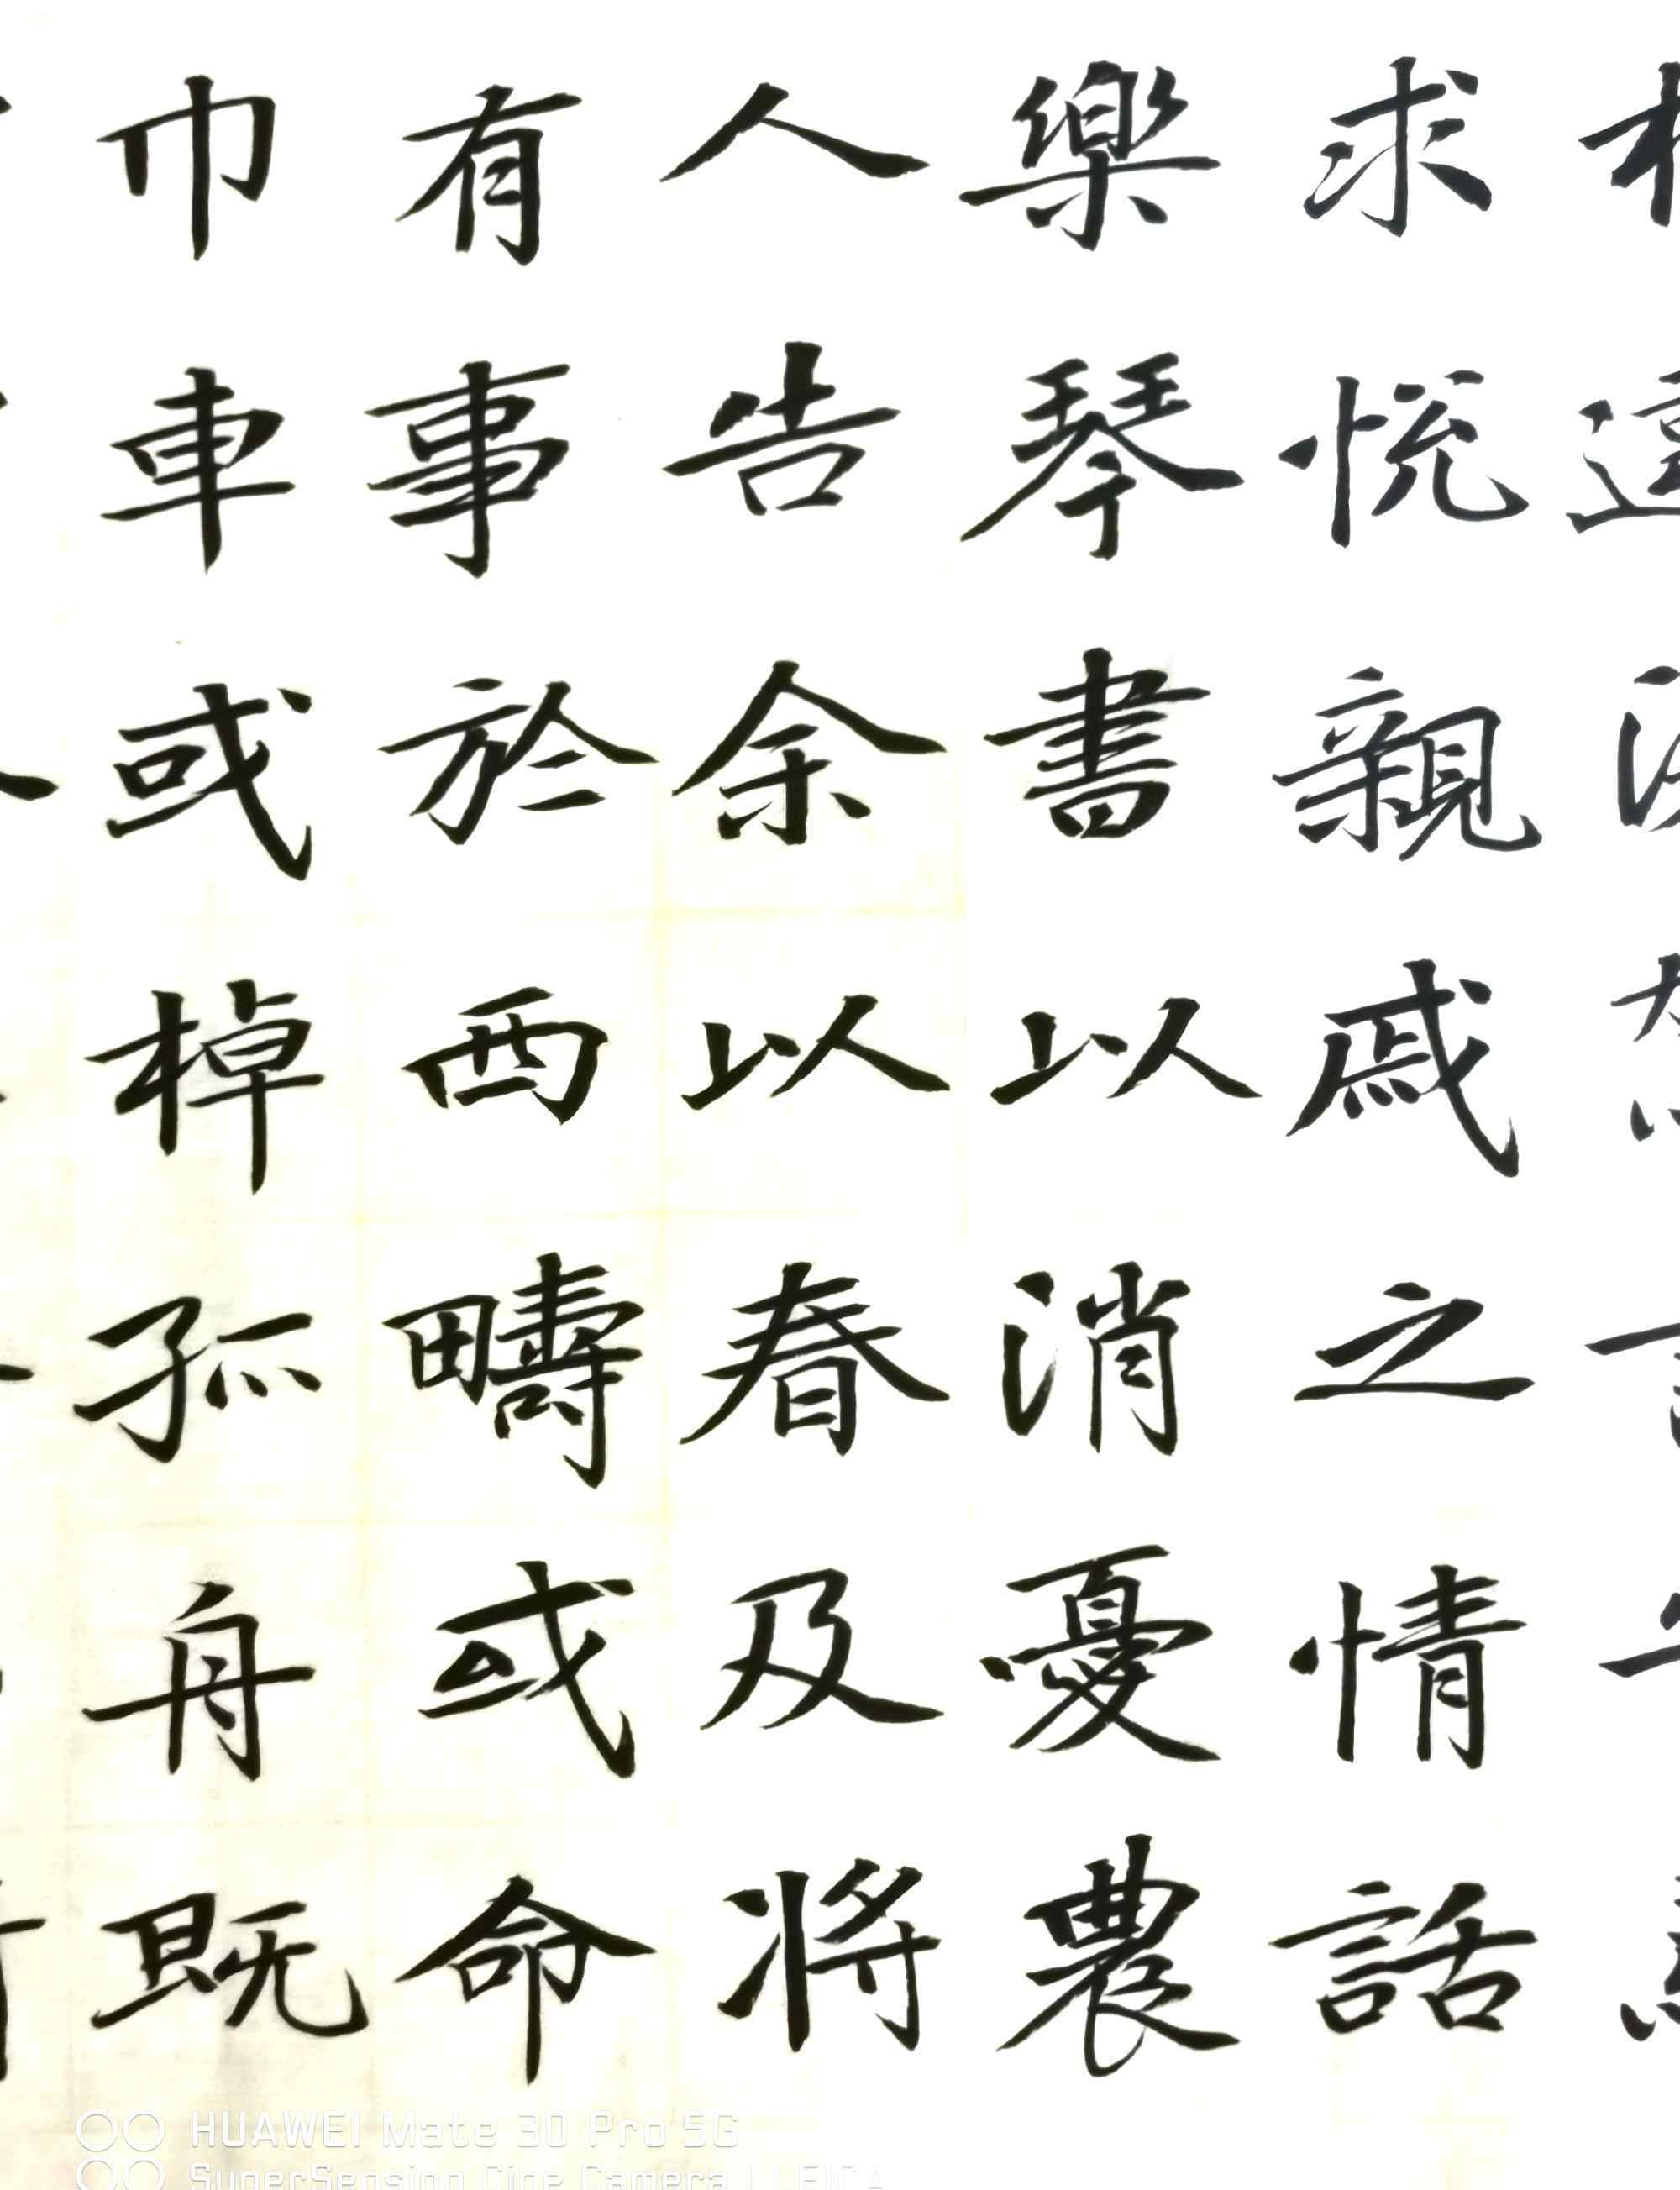 求悅親戚之情話
樂琴書以消憂農
人告余以春及將
有事於西疇或命
巾車或棹孤舟既
HUAWEI Mate 30 Pro 5G
SuperSensing Cine Camera | LEICA